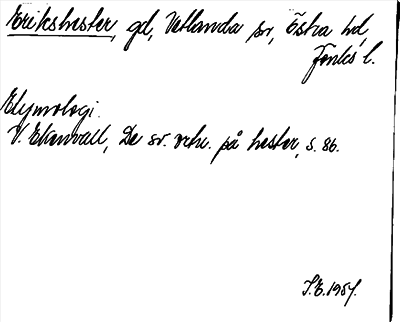 Erikshester, gd, Vetlanda sn, Östra hd,
Jönks l.
Etymologi.
V. Ekenvall, De sv. ortn. på hester, s. 86.
S.E. 1957.